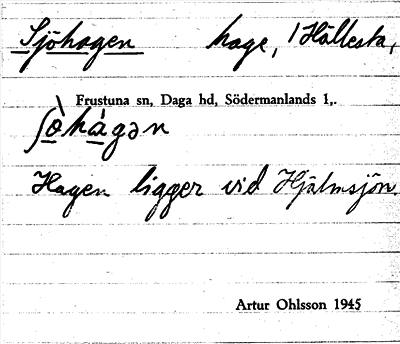 Sjöhagen hage, 1 Hällesta,
Frustuna sn, Daga hd, Södermanlands l,.
ʃø̀hágən
Hagen ligger vid Hjälmsjön.
Artur Ohlsson 1945